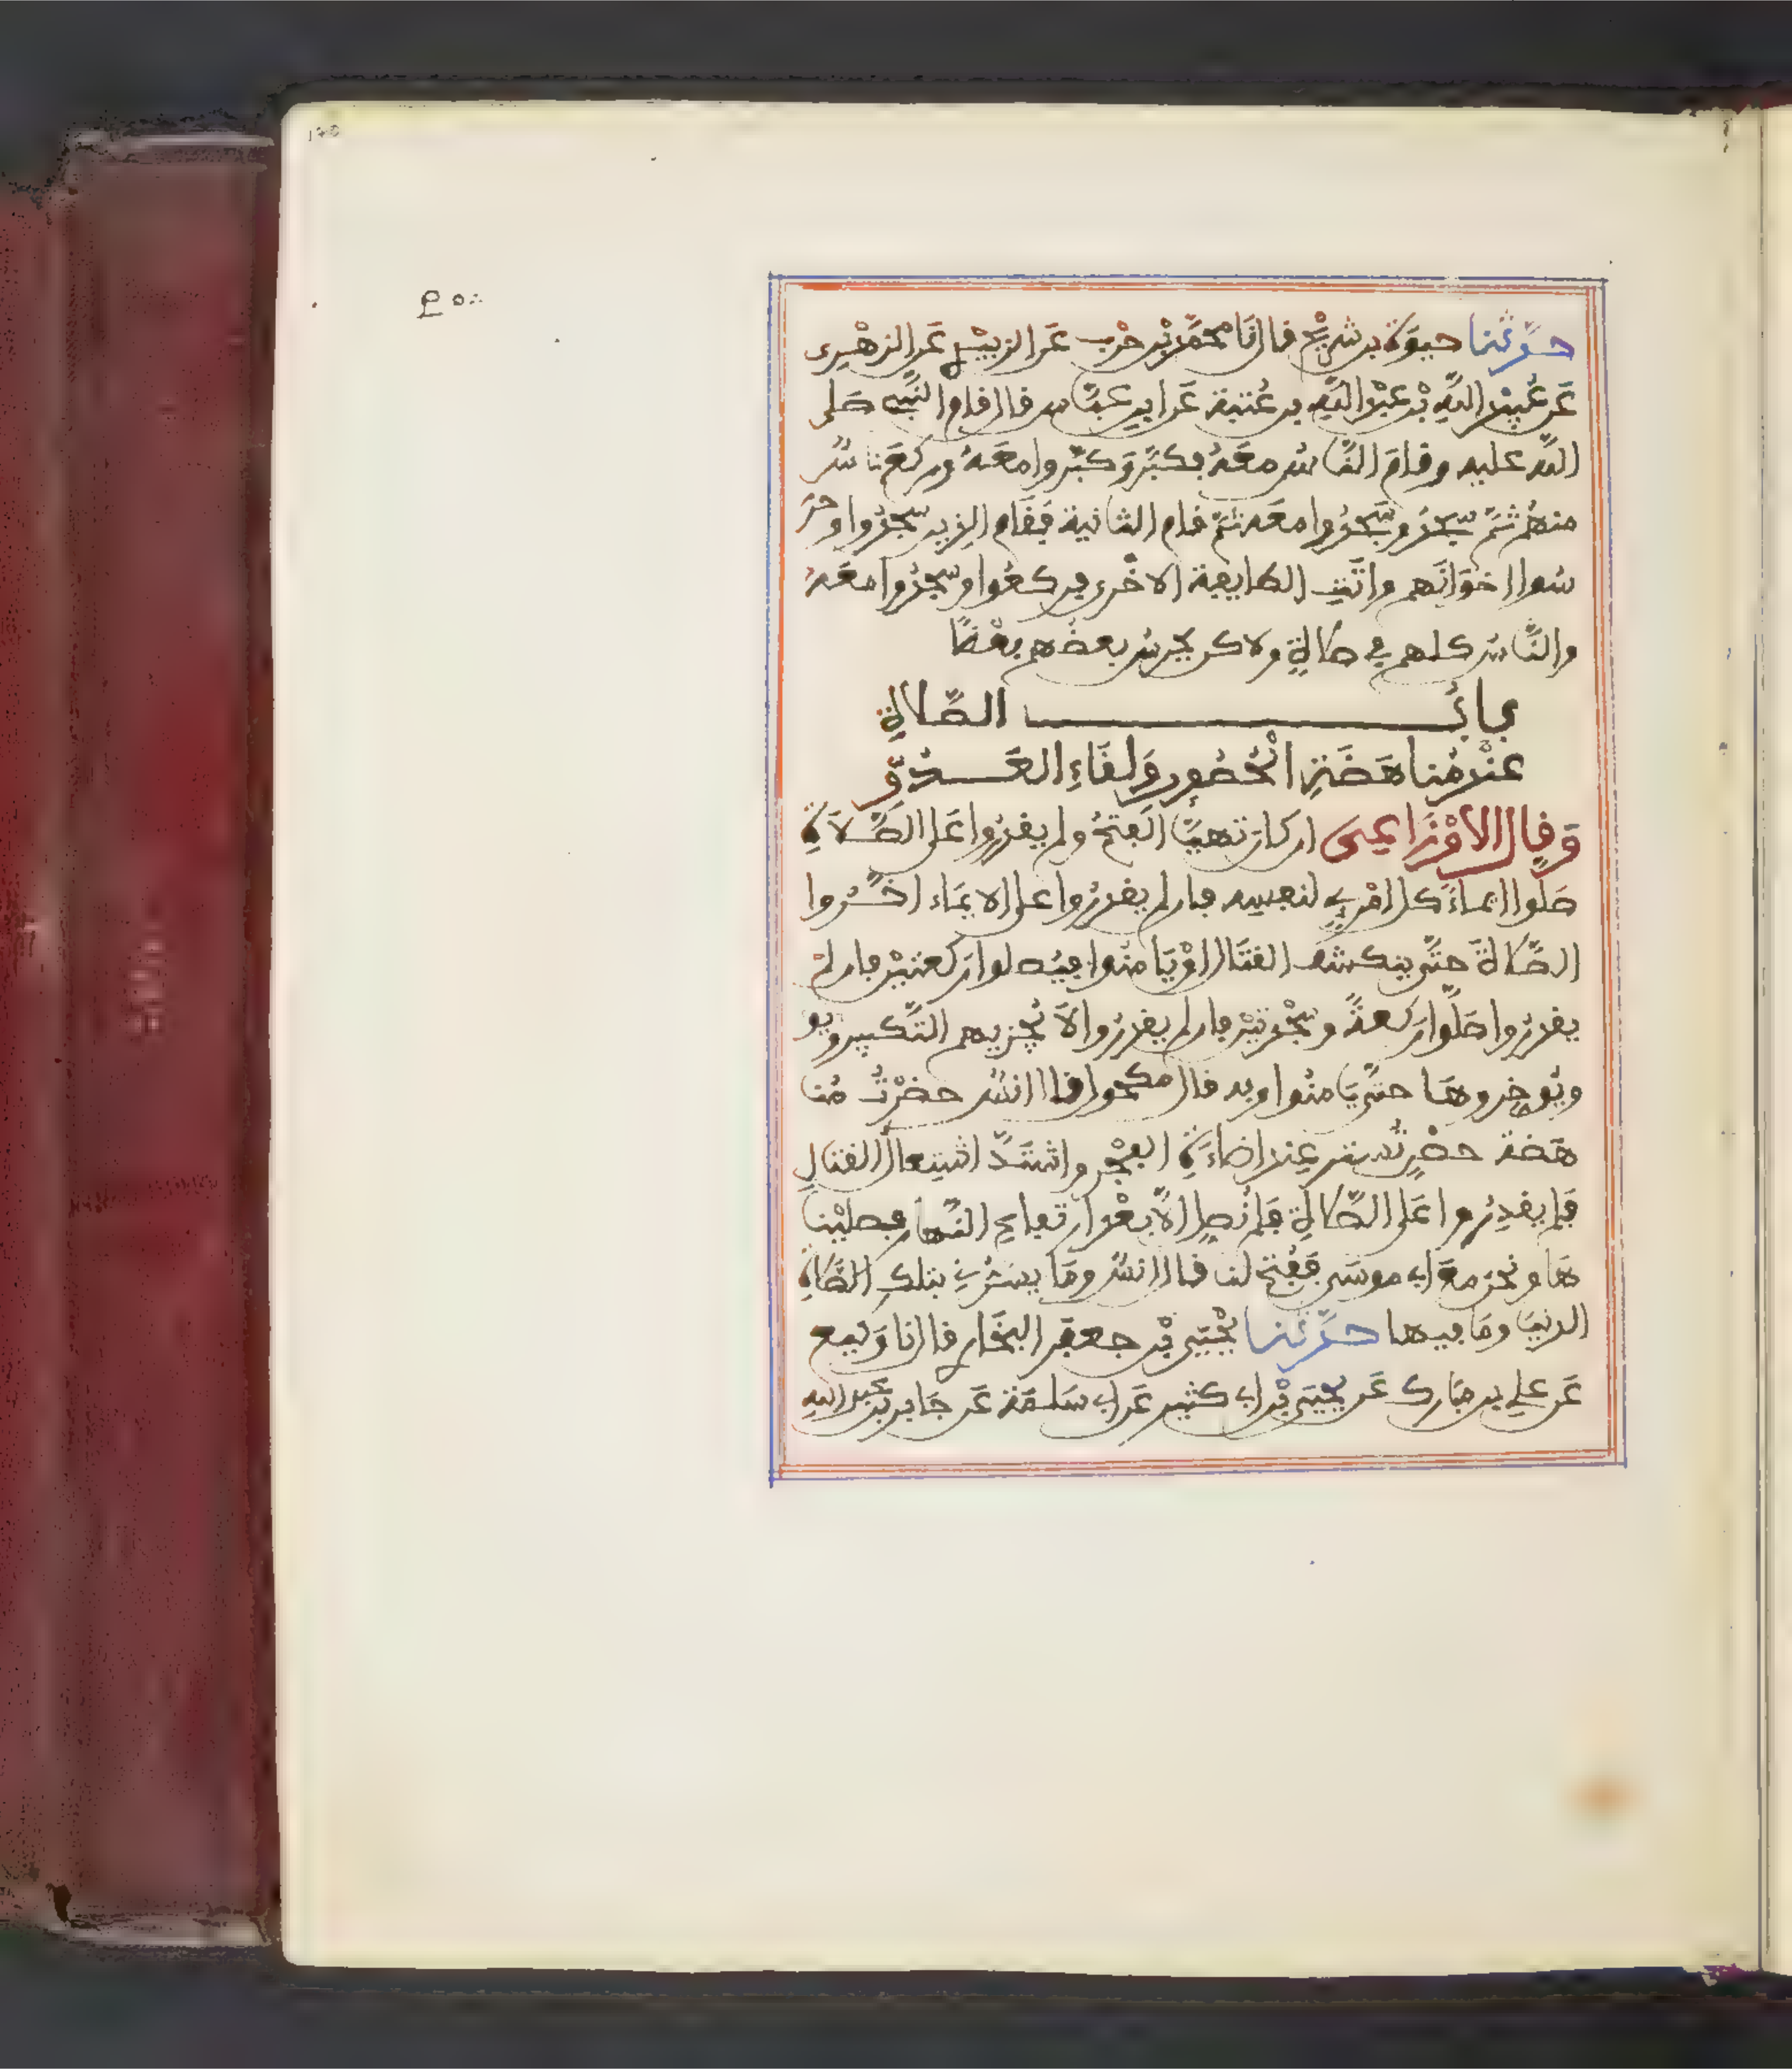 حدثنا حيوة بن شريح قال نا محمد بن حرب عن الزبيدي عن الزهري
عن عبيد الله بن عبد الله بن عتبة عن ابن عباس قال قام النبي صلى
الله عليه وقام الناس معه فكبر وكبروا معه وركع ناس
منهم ثم سجد وسجدوا معه ثم قام الثانية فقام الذين سجدوا وحر
سوا اخوانهم واتت الطايفة الاخرى فركعوا وسجدوا معه
والناس كلهم في صلاة ولاكن يحرس بعضهم بعضا
باب الصلاة
عند مناهضة الحصون ولقاء العدو
وقال الاوزاعي ان كان تهيا الفتح ولم يقدروا على الصلاة
صلوا ايماء كل امرئ لنفسه فان لم يقدروا على الايماء اخروا
الصلاة حتى ينكشف القتال او يامنوا فيصلوا ركعتين فان لم
يقدروا صلوا ركعة وسجدتين فان لم يقدروا لا يجزيهم التكبير ويو
ويوخروها حتى يامنوا وبه قال مكحول قال انس حضرت منا
هضة حصن تستر عند اضاءة الفجر واشتد اشتعال القتال
فلم يقدروا على الصلاة فلم نصل الا بعد ارتفاع النهار فصلينا
ها ونحن مع ابي موسى ففتح لنا قال انس وما يسرني بتلك الصلاة
الدنيا وما فيها حدثنا يحيى بن جعفر البخاري قال نا وكيع
عن علي بن مبارك عن يحيى بن ابي كثير عن ابي سلمة عن جابر بن عبد الله